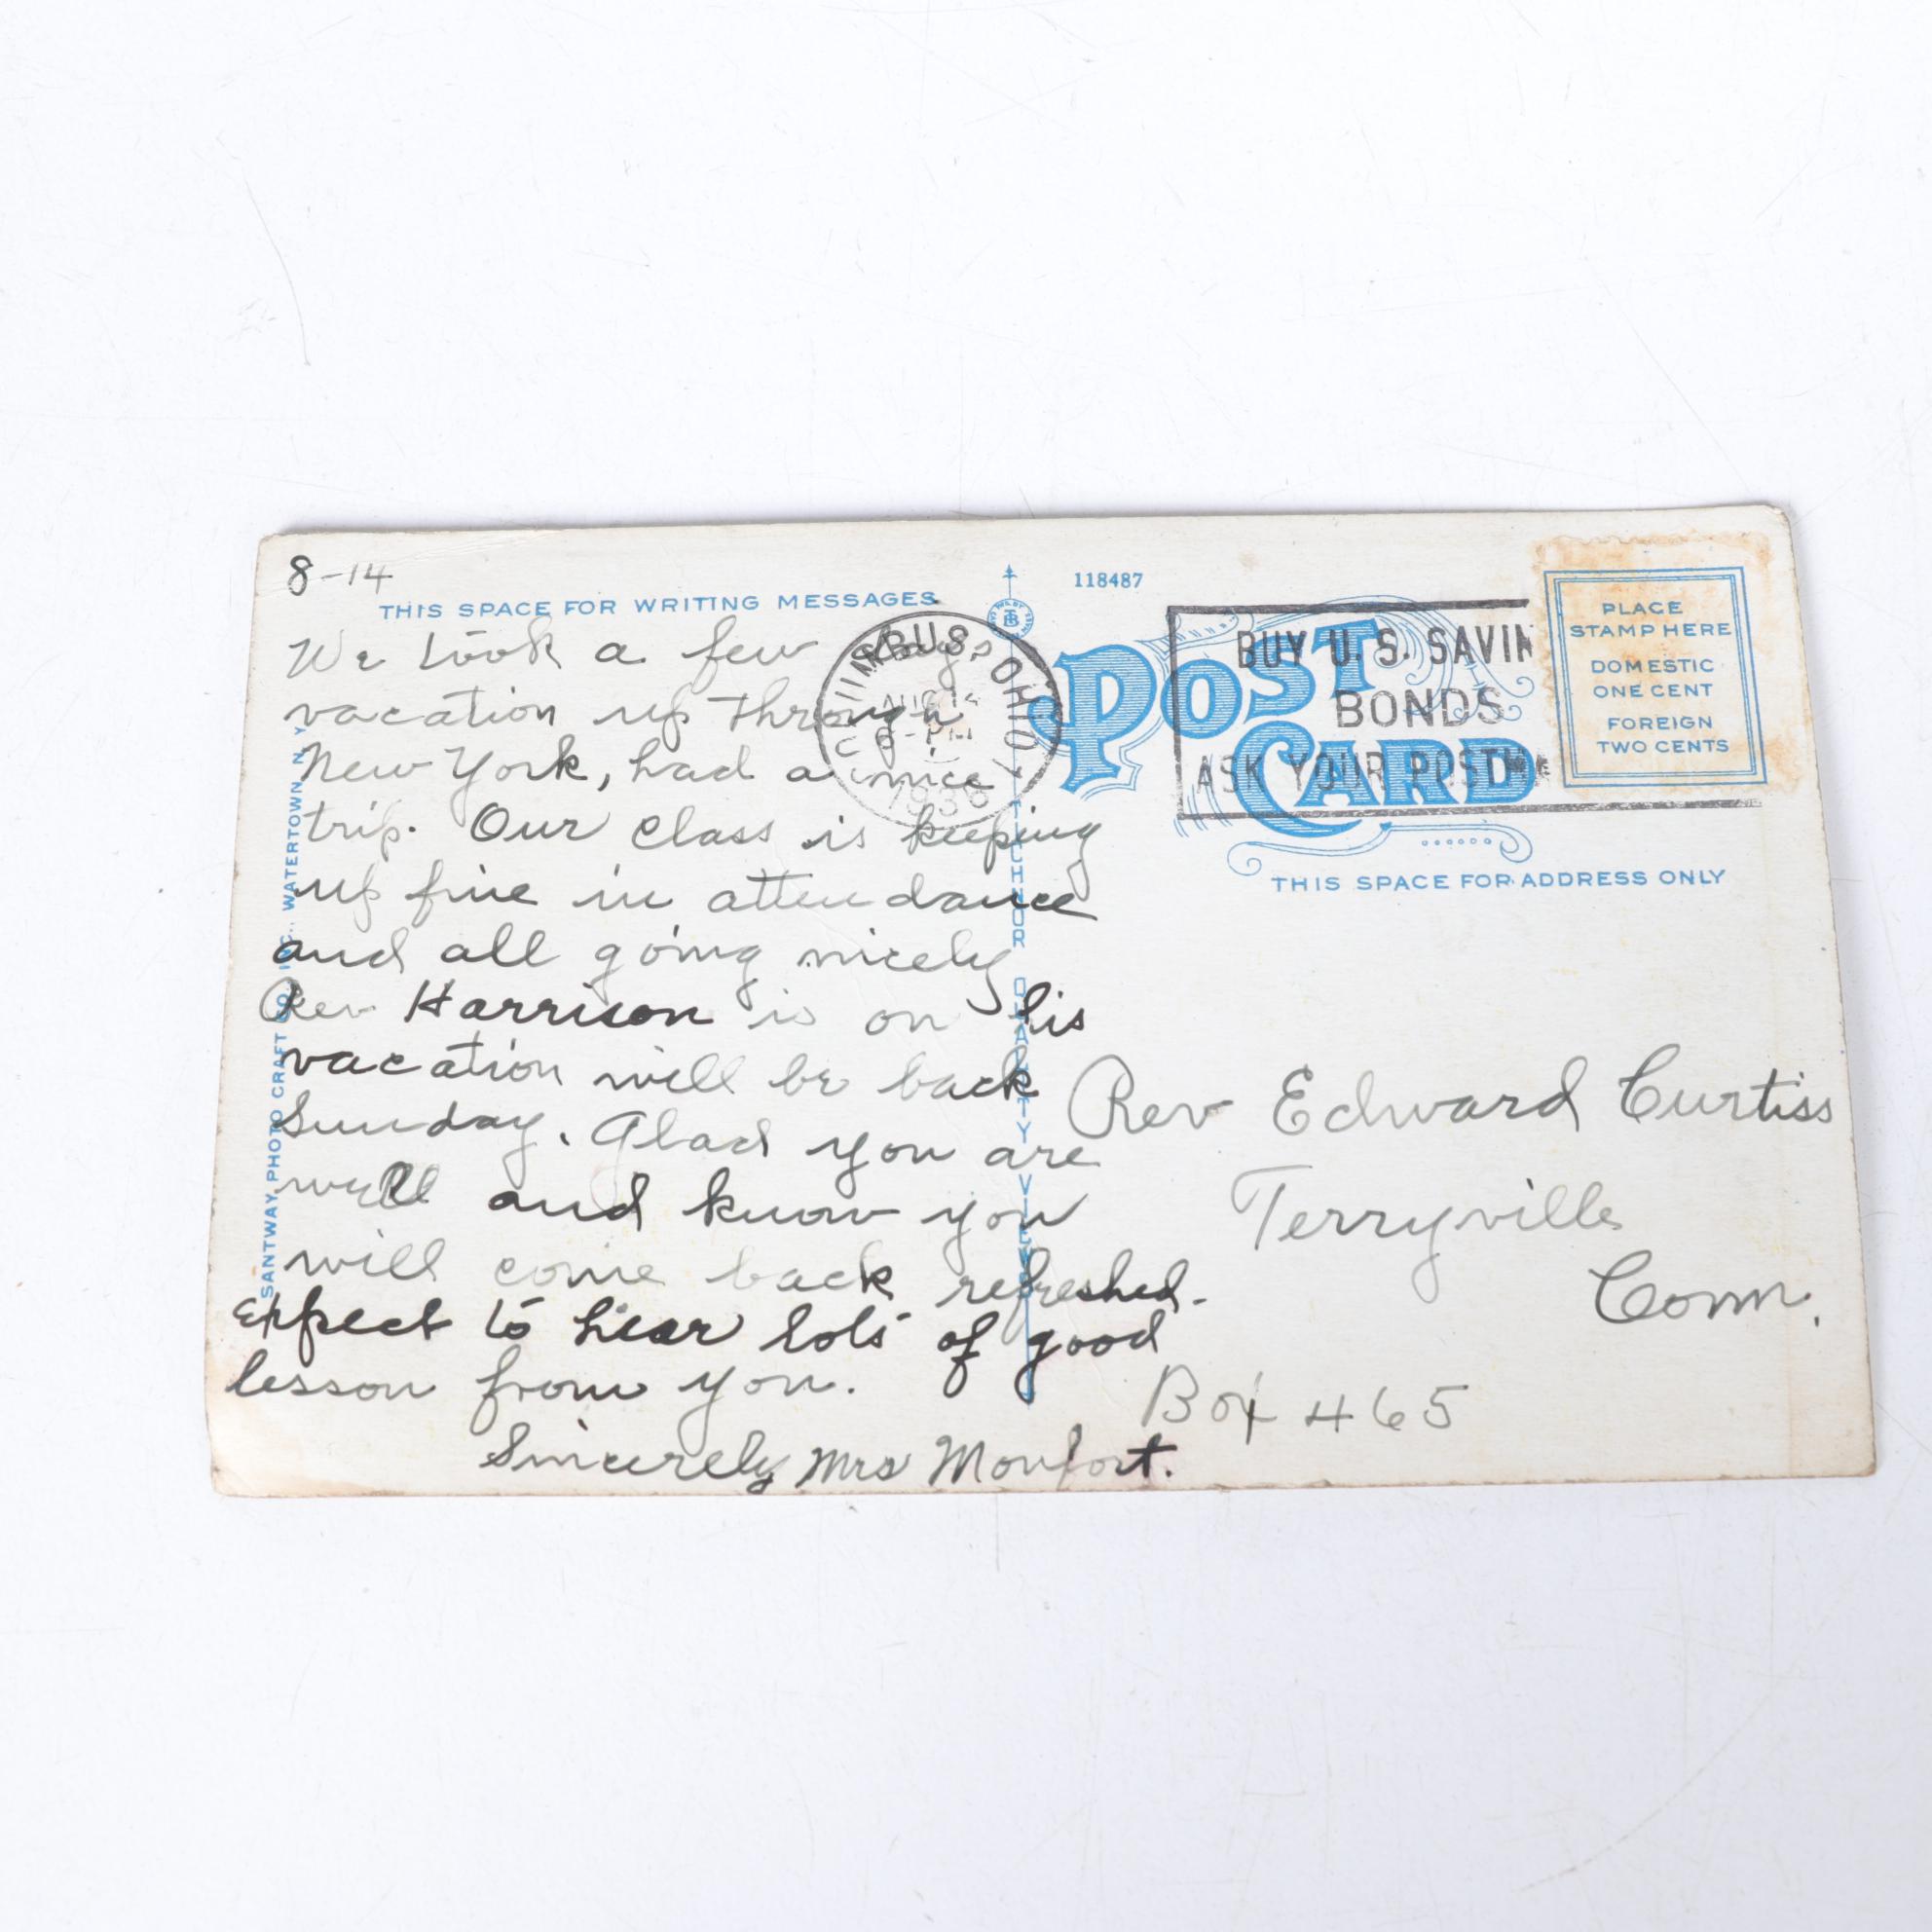 8-14
THIS SPACE FOR WRITING MESSAGES
We took a few days
vacation up through
New York, had a nice
trip. Our class is keeping
up fine in attendance
and all going nicely
Rev Harrison is on his
vacation will be back
Sunday. Glad you are
well and know you
will come back refreshed.
Expect to hear lots of good
lesson from you.
Sincerely Mrs Monfort.
SANTWAY PHOTO CRAFT CO., INC., WATERTOWN, N. Y.
TICHNOR QUALITY VIEWS
118487
POST CARD
COLUMBUS, OHIO
AUG 14
6-PM
1936
BUY U.S. SAVIN
BONDS
ASK YOUR POSTMA
PLACE
STAMP HERE
DOMESTIC
ONE CENT
FOREIGN
TWO CENTS
THIS SPACE FOR ADDRESS ONLY
Rev Edward Curtiss
Terryville
Conn.
Box 465